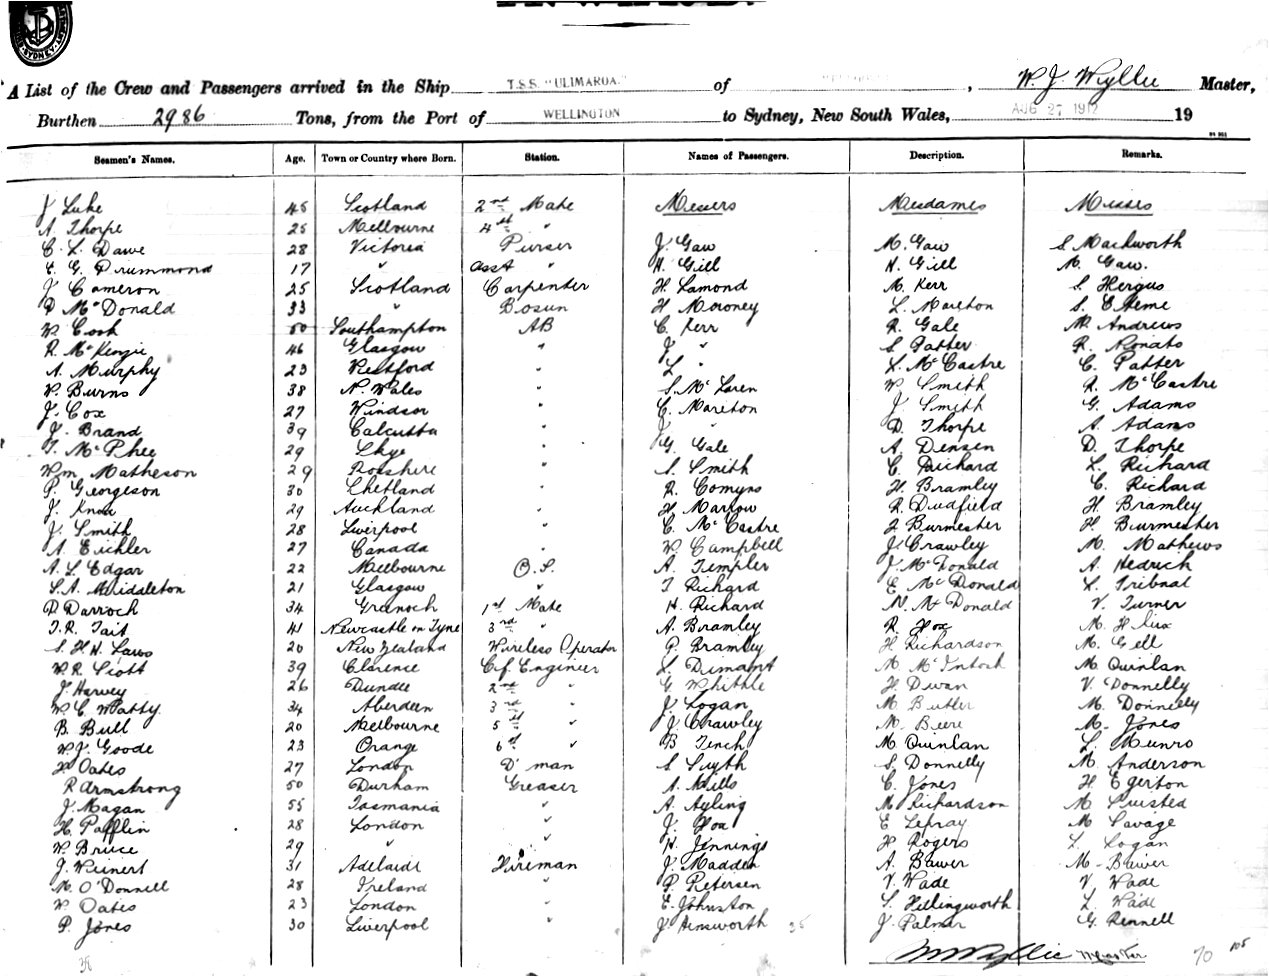 A List of the Crew and Passengers arrived in the Ship T.S.S. "ULIMAROA." of , W. J. Wyllie Master,
Burthen 2986 Tons, from the Port of WELLINGTON to Sydney, New South Wales, AUG 27 1912 19
Seamen's Names. Age. Town or Country where Born. Station. Names of Passengers. Description. Remarks.
J Luke 45 Scotland 2nd Mate Messrs Mesdames Misses
A. Thorpe 25 Melbourne 4th "
C. L. Dawe 28 Victoria Purser J. Gaw M. Gaw S Mackworth
G. Drummond 17 " Asst " H. Gill H. Gill M. Gaw.
J Cameron 25 Scotland Carpenter H Lamond M. Kerr S Hergus
D McDonald 33 " Bosun H Moroney L. Mareton S
W. Cook 50 Southampton AB C. Kerr R. Gale M. Andrews
R. McKenzie 46 Glasgow " J " S Patter R.
A. Murphy 23 " L " L. McCastre C. Patter
W. Burns 38 N. Wales " S. McLaren W Smith R. McCastre
J. Cox 27 Windsor " C. Mareton J Smith G. Adams
J. Brand 39 Calcutta " J " D. Thorpe A. Adams
T. McPhee 29 Skye " G. Gale A Densen D. Thorpe
Wm. Matheson 29 Rosshire " S. Smith C. Richard L. Richard
P. Georgeson 30 Shetland " R. Comyns H. Bramley C. Richard
J. Knox 29 Auckland " H Marlow R. Dudfield H Bramley
J. Smith 28 Liverpool " C. McCastre J Burmester H. Burmester
A. Eichler 27 Canada " W. Campbell J. Crawley M. Mathews
A. L. Edgar 22 Melbourne O.S. A. Templer J. McDonald A. Hedrick
S. A. Middleton 21 Glasgow " T Richard E McDonald L. Tribnal
D Darroch 34 Granoch 1st Mate H. Richard N. McDonald V. Turner
T. R. Tait 41 Newcastle on Tyne 3rd " A. Bramley R. Fox M.
S. H. H. Laws 20 New Zealand Wireless Operator P. Bramley H Richardson M. Gell
W. R. Scott 39 Clarence Cf. Engineer S. Dimant M McIntosh M. Quinlan
J. Harvey 26 Dundee 2nd " G Whittle H Dwan V. Donnelly
W C. Watty. 34 Aberdeen 3rd " J. Logan M. Butler M. Donnelly
B. Bull 20 Melbourne 5th " J. Crawley M. Beere M. Jones
W. J. Goode 23 Orange 6th " B Tench M. Quinlan L. Munro
Oates 27 London D'man S Smyth S. Donnelly M Anderson
R Armstrong 50 Durham Greaser A. Mills C. Jones H Egerton
J. Magan 55 Tasmania " A. Ayling M. Richardson M Twisted
H. Pafflin 28 London " J. Fox E Lefray M Savage
W. Bruce 29 " " H. Jennings H Rogers L Logan
J. Weinert 31 Adelaide Fireman J. Madden A. Bawer M. Bawer
M. O'Donnell 28 Ireland " P. Petersen V. Wade V Wade
W Oates 23 London " E. Johnston S. Hillingworth L Wade
P. Jones 30 Liverpool " J Hemsworth 35 J. Palmer G. Rennell
W J Wyllie Master 70 105